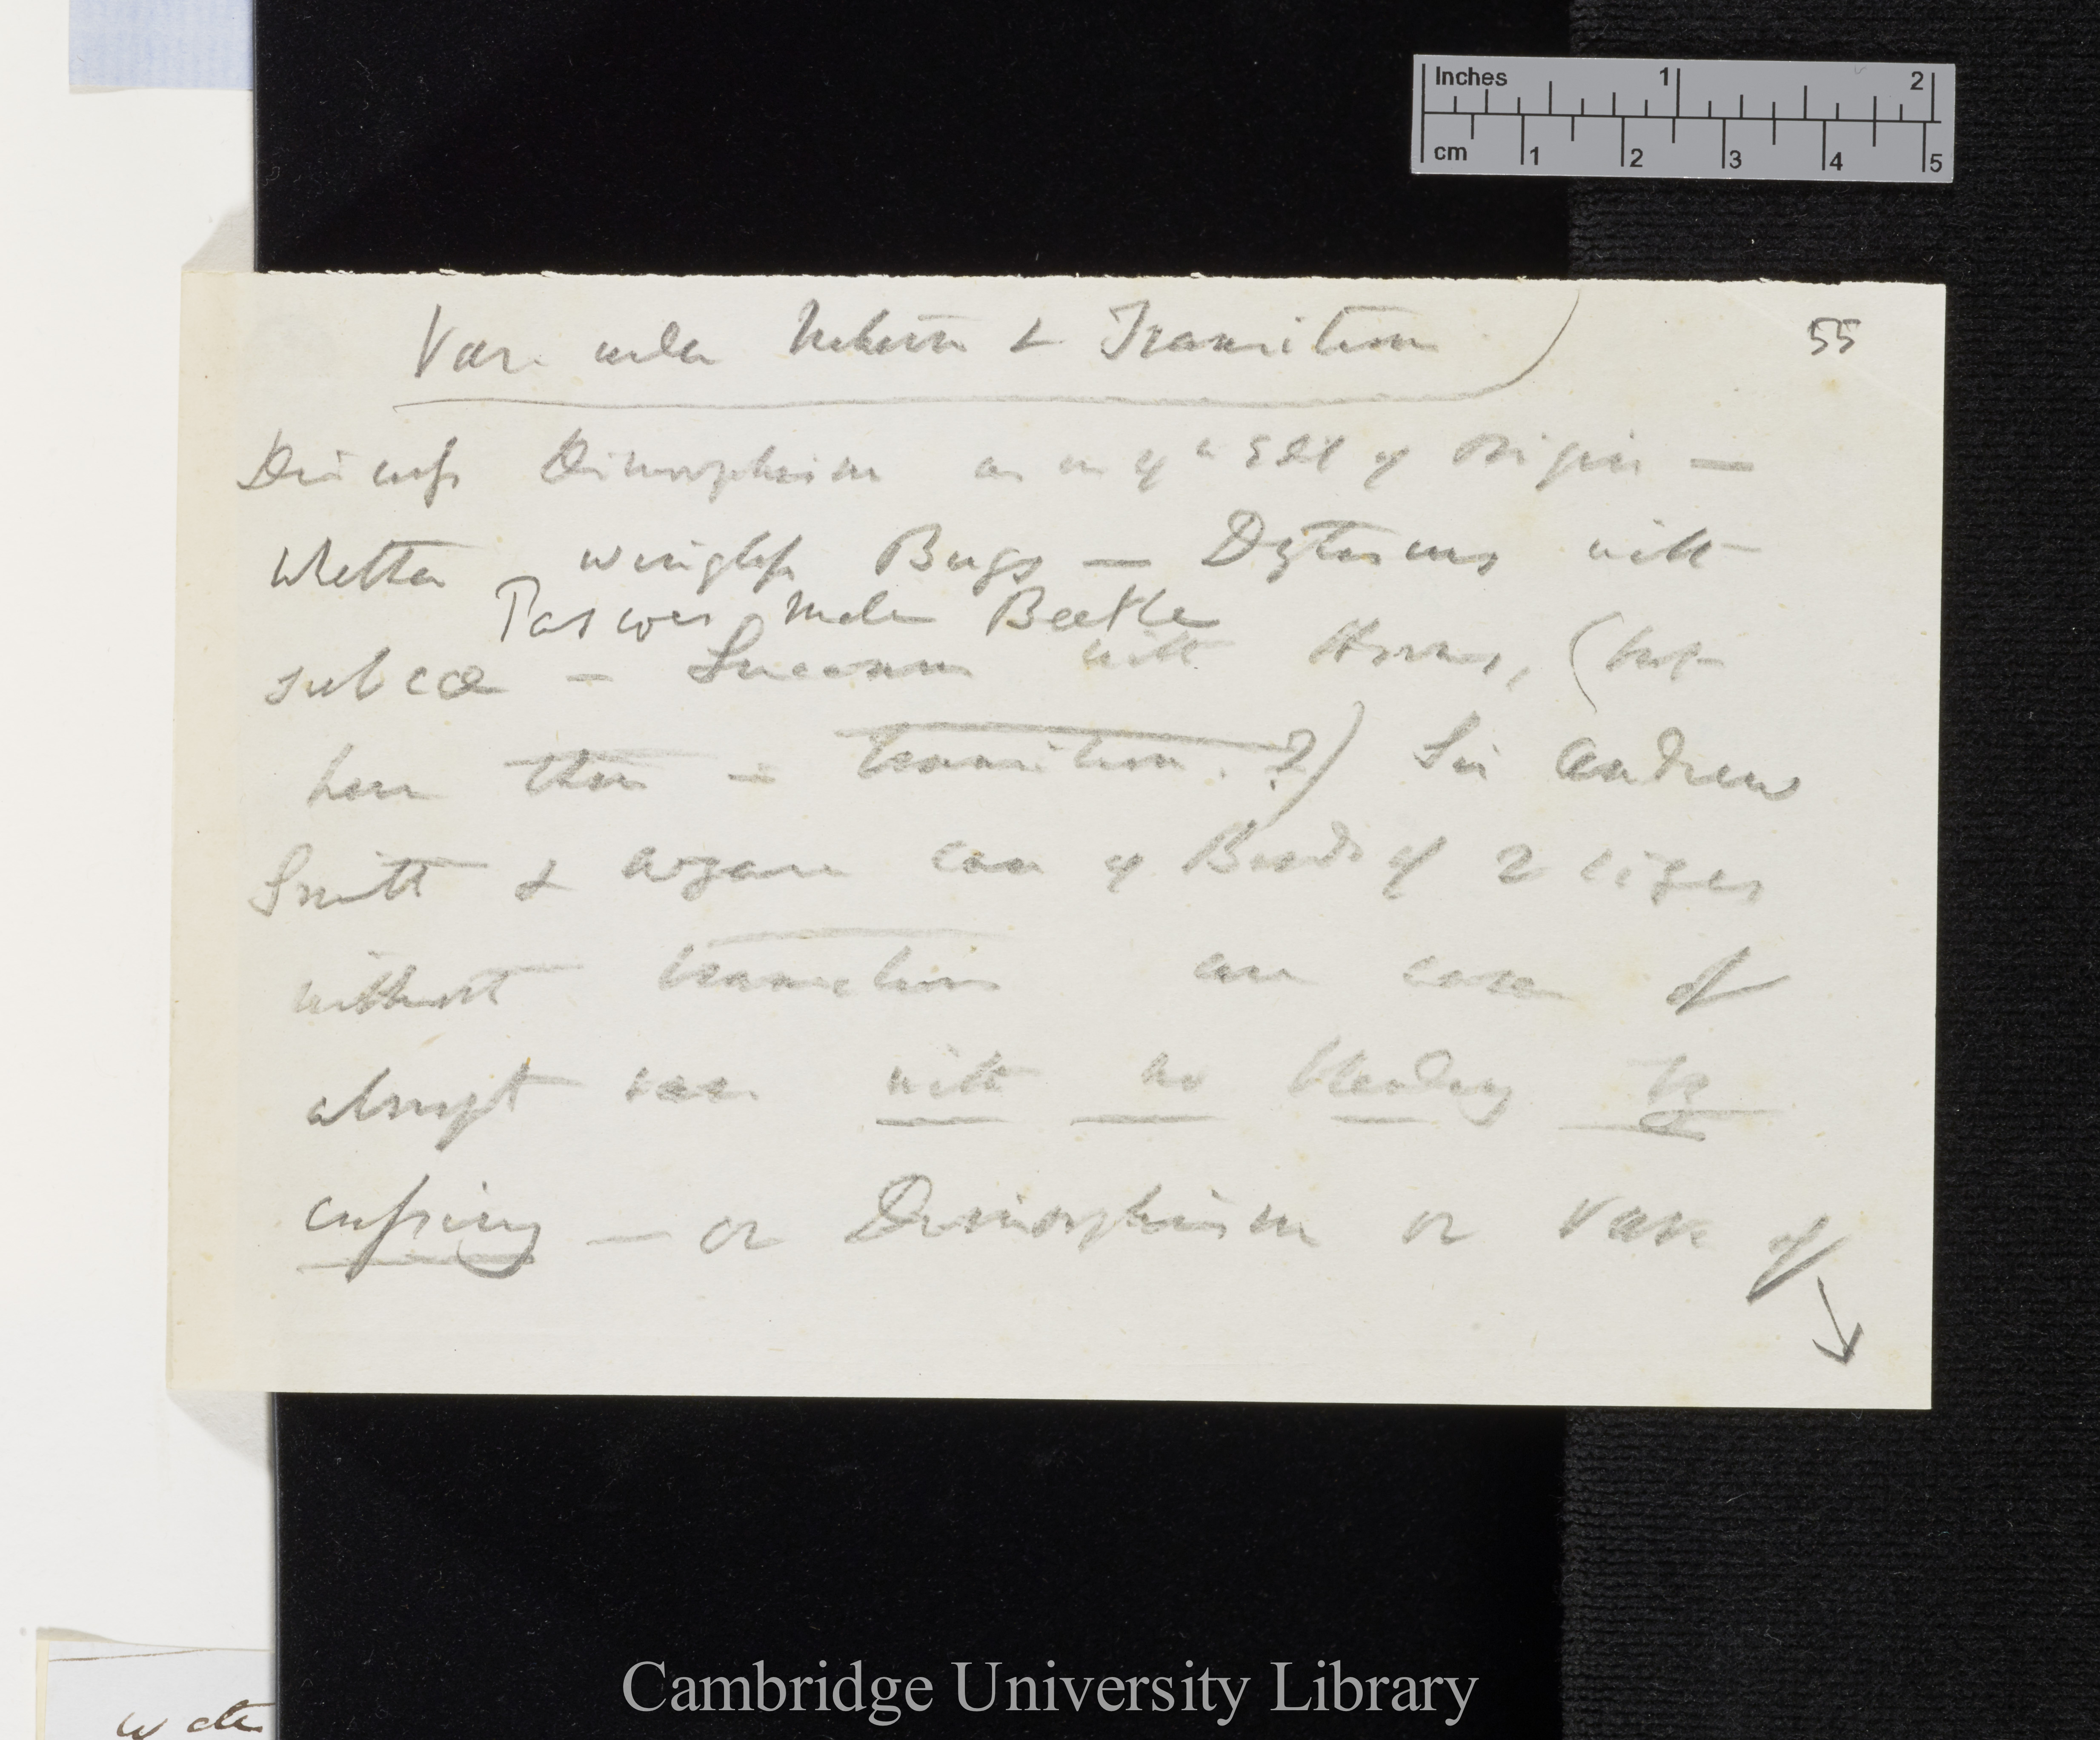 Inches 1 2
cm 1 2 3 4 5
55
Var. under Nature & Transition
Discuss Dimorphism as in 4th Edit of Origin —
Whether wingless Bugs — Dytiscus with
Male Beetle
sulcæ — Lucanus with Horns, (but
have these — transition. ?) Sir Andrew
Smith & case of Birds of 2 sizes
without transition are cases of
abrupt var. with no blending by
crossing — or Dimorphism or Vars of
Cambridge University Library